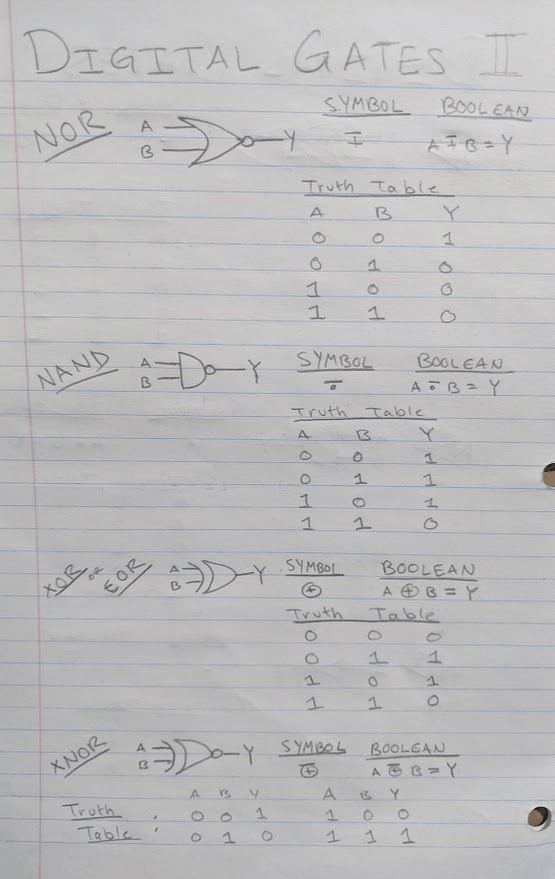 DIGITAL GATES II
SYMBOL BOOLEAN
NOR A B Y ∓ A ∓ B = Y
Truth Table
A B Y
0 0 1
0 1 0
1 0 0
1 1 0
NAND A B Y SYMBOL BOOLEAN
⩪ A ⩪ B = Y
Truth Table
A B Y
0 0 1
0 1 1
1 0 1
1 1 0
XOR or EOR A B Y SYMBOL BOOLEAN
⊕ A ⊕ B = Y
Truth Table
0 0 0
0 1 1
1 0 1
1 1 0
XNOR A B Y SYMBOL BOOLEAN
⊕̅ A ⊕̅ B = Y
A B Y A B Y
Truth : 0 0 1 1 0 0
Table 0 1 0 1 1 1